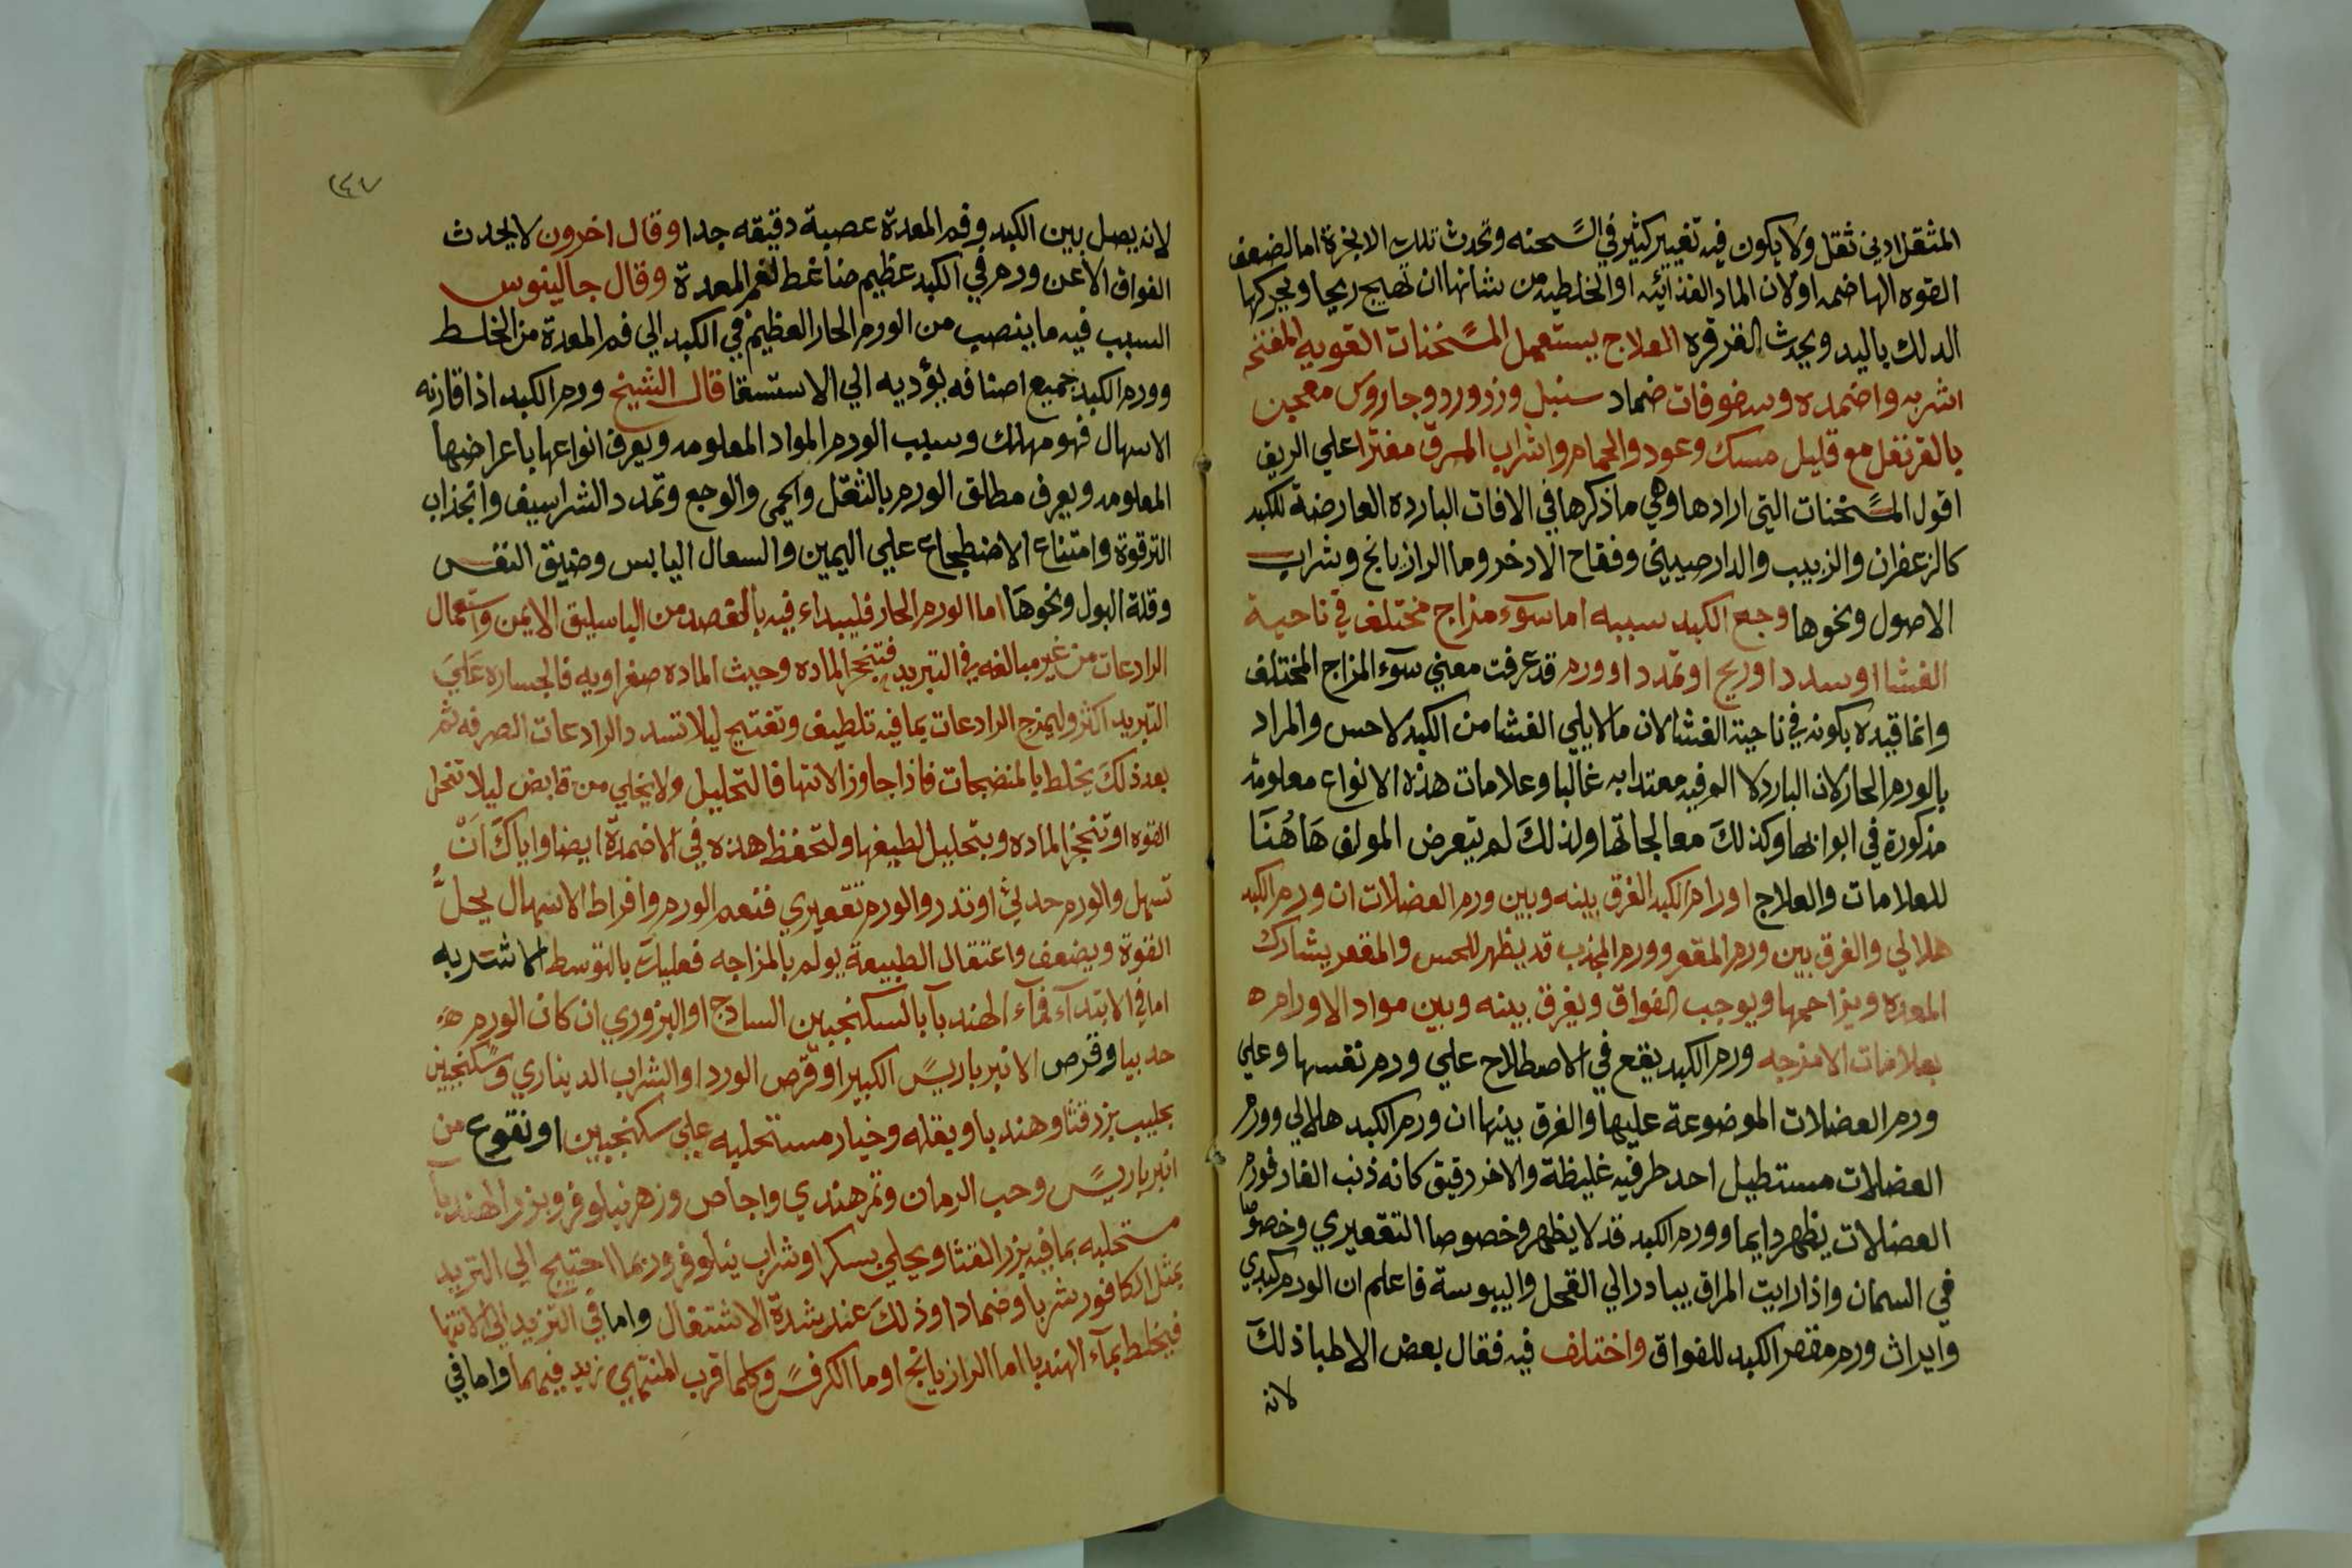 المثقل ادني ثقل ولا يكون فيه تغيير كثير في السحنه وتحدث تلك الابخرة اما لضعف
القوه الهاضمه او لان الماد الغذائيه او الخلطيه من شانها ان تهيج ريحا ويحركها
الدلك باليد ويحدث القرقره العلاج يستعمل المسخنات القويه المفتحه
اشربه واضمده وسفوفات ضماد سنبل وزرورد وجاروس معجين
بالقرنفل مع قليل مسك وعود والحمام واشراب المسرق مفترا علي الريق
اقول المسخنات التي ارادها وهي ما ذكرها في الافات البارده العارضة للكبد
كالزعفران والزبيب والدارصيني وفقاح الاذخر وما الرازيانج وشراب
الاصول ونحوها وجع الكبد سببه اما سوء مزاج مختلف في ناحية
الغشا او سدد او ريح او تمدد او ورم قد عرفت معني سوء المزاج المختلف
وانما قيده بكونه في ناحية الغشا لان ما لا يلي الغشا من الكبد لا حس والمراد
بالورم الحار لان البارد لا الم فيه معتدا به غالبا وعلامات هذه الانواع معلومة
مذكورة في ابوابها وكذلك معالجاتها ولذلك لم يتعرض المولف هاهنا
للعلامات والعلاج اورام الكبد الفرق بينه وبين ورم العضلات ان ورم الكبد
هلالي والفرق بين ورم المقعر وورم المحذب قد يظهر للحس والمقعر يشارك
المعده ويزاحمها ويوجب الفواق ويفرق بينه وبين مواد الاورام ه
بعلامات الامزجه ورم الكبد يقع في الاصطلاح علي ورم نفسها وعلي
ورم العضلات الموضوعة عليها والفرق بينها ان ورم الكبد هلالي وورم
العضلات مستطيل احد طرفيه غليظة والاخر رقيق كانه ذنب الفار فورم
العضلات يظهر دايما وورم الكبد قد لا يظهر وخصوصا التقعيري وخصوصا
في السمان واذا رايت المراق يبادر الي القحل واليبوسة فاعلم ان الورم كبدي
وايراث ورم مقعر الكبد للفواق واختلف فيه فقال بعض الاطبا ذلك
لانه
٢٤٧
لانه يصل بين الكبد وفم المعدة عصبة دقيقه جدا وقال اخرون لا يحدث
الفواق الا عن ورم في الكبد عظيم ضاغط لفم المعدة وقال جالينوس
السبب فيه ما ينصب من الورم الحار العظيم في الكبد الي فم المعدة من الخلط
وورم الكبد جميع اصنافه يؤديه الي الاستسقا قال الشيخ ورم الكبد اذا قارنه
الاسهال فهو مهلك وسبب الورم المواد المعلومه ويعرف انواعها باعراضها
المعلومه ويعرف مطلق الورم بالثقل والحمي والوجع وتمدد الشراسيف وانجذاب
الترقوة وامتناع الاضطجاع علي اليمين والسعال اليابس وضيق النفس
وقلة البول ونحوها اما الورم الحار فليبداء فيه بالفصد من الباسليق الايمن واستعمال
الرادعات من غير مبالغه في التبريد فتتحجر الماده وحيث الماده صفراويه فالجساره علي
التبريد اكثر وليمزج الرادعات بما فيه تلطيف وتفتيح ليلا تسدد الرادعات الصرفه ثم
بعد ذلك يخلط بالمنضجات فاذا جاوز الانتها فالتحليل ولا يخلي من قابض ليلا تنحل
القوه او تتحجر الماده وبتحليل لطيفها ولتحفظ هذه في الاضمدة ايضا واياك ان
تسهل والورم حدبي او تدر والورم تقعيري فتعم الورم وافراط الاسهال يحل
القوة ويضعف واعتقال الطبيعة يولم بالمزاحمه فعليك بالتوسط الاشتربه
اما في الابتداء فماء الهندبا بالسكنجبين السادج او البزوري ان كان الورم
حدبيا وقرص الانبرباريس الكبير او قرص الورد او الشراب الديناري وسكنجبين
بحليب بزر قثا وهندبا وبقله وخيار مستحلبه علي سكنجبين او نقوع من
انبرباريس وحب الرمان وتمر هندي واجاص وزهر نيلوفر وبزر الهندبا
مستحلبه بما فيه بزر القثا ويحلي بسكر او شراب نيلوفر وربما احتيج الي التبريد
بمثل الكافور شربا وضمادا وذلك عند شدة الاشتعال واما في التزيد الي الانتها
فيخلط بماء الهندبا اما الرازيانج او ما الكرفس وكلما قرب المنتهي زيد فيهما واما في